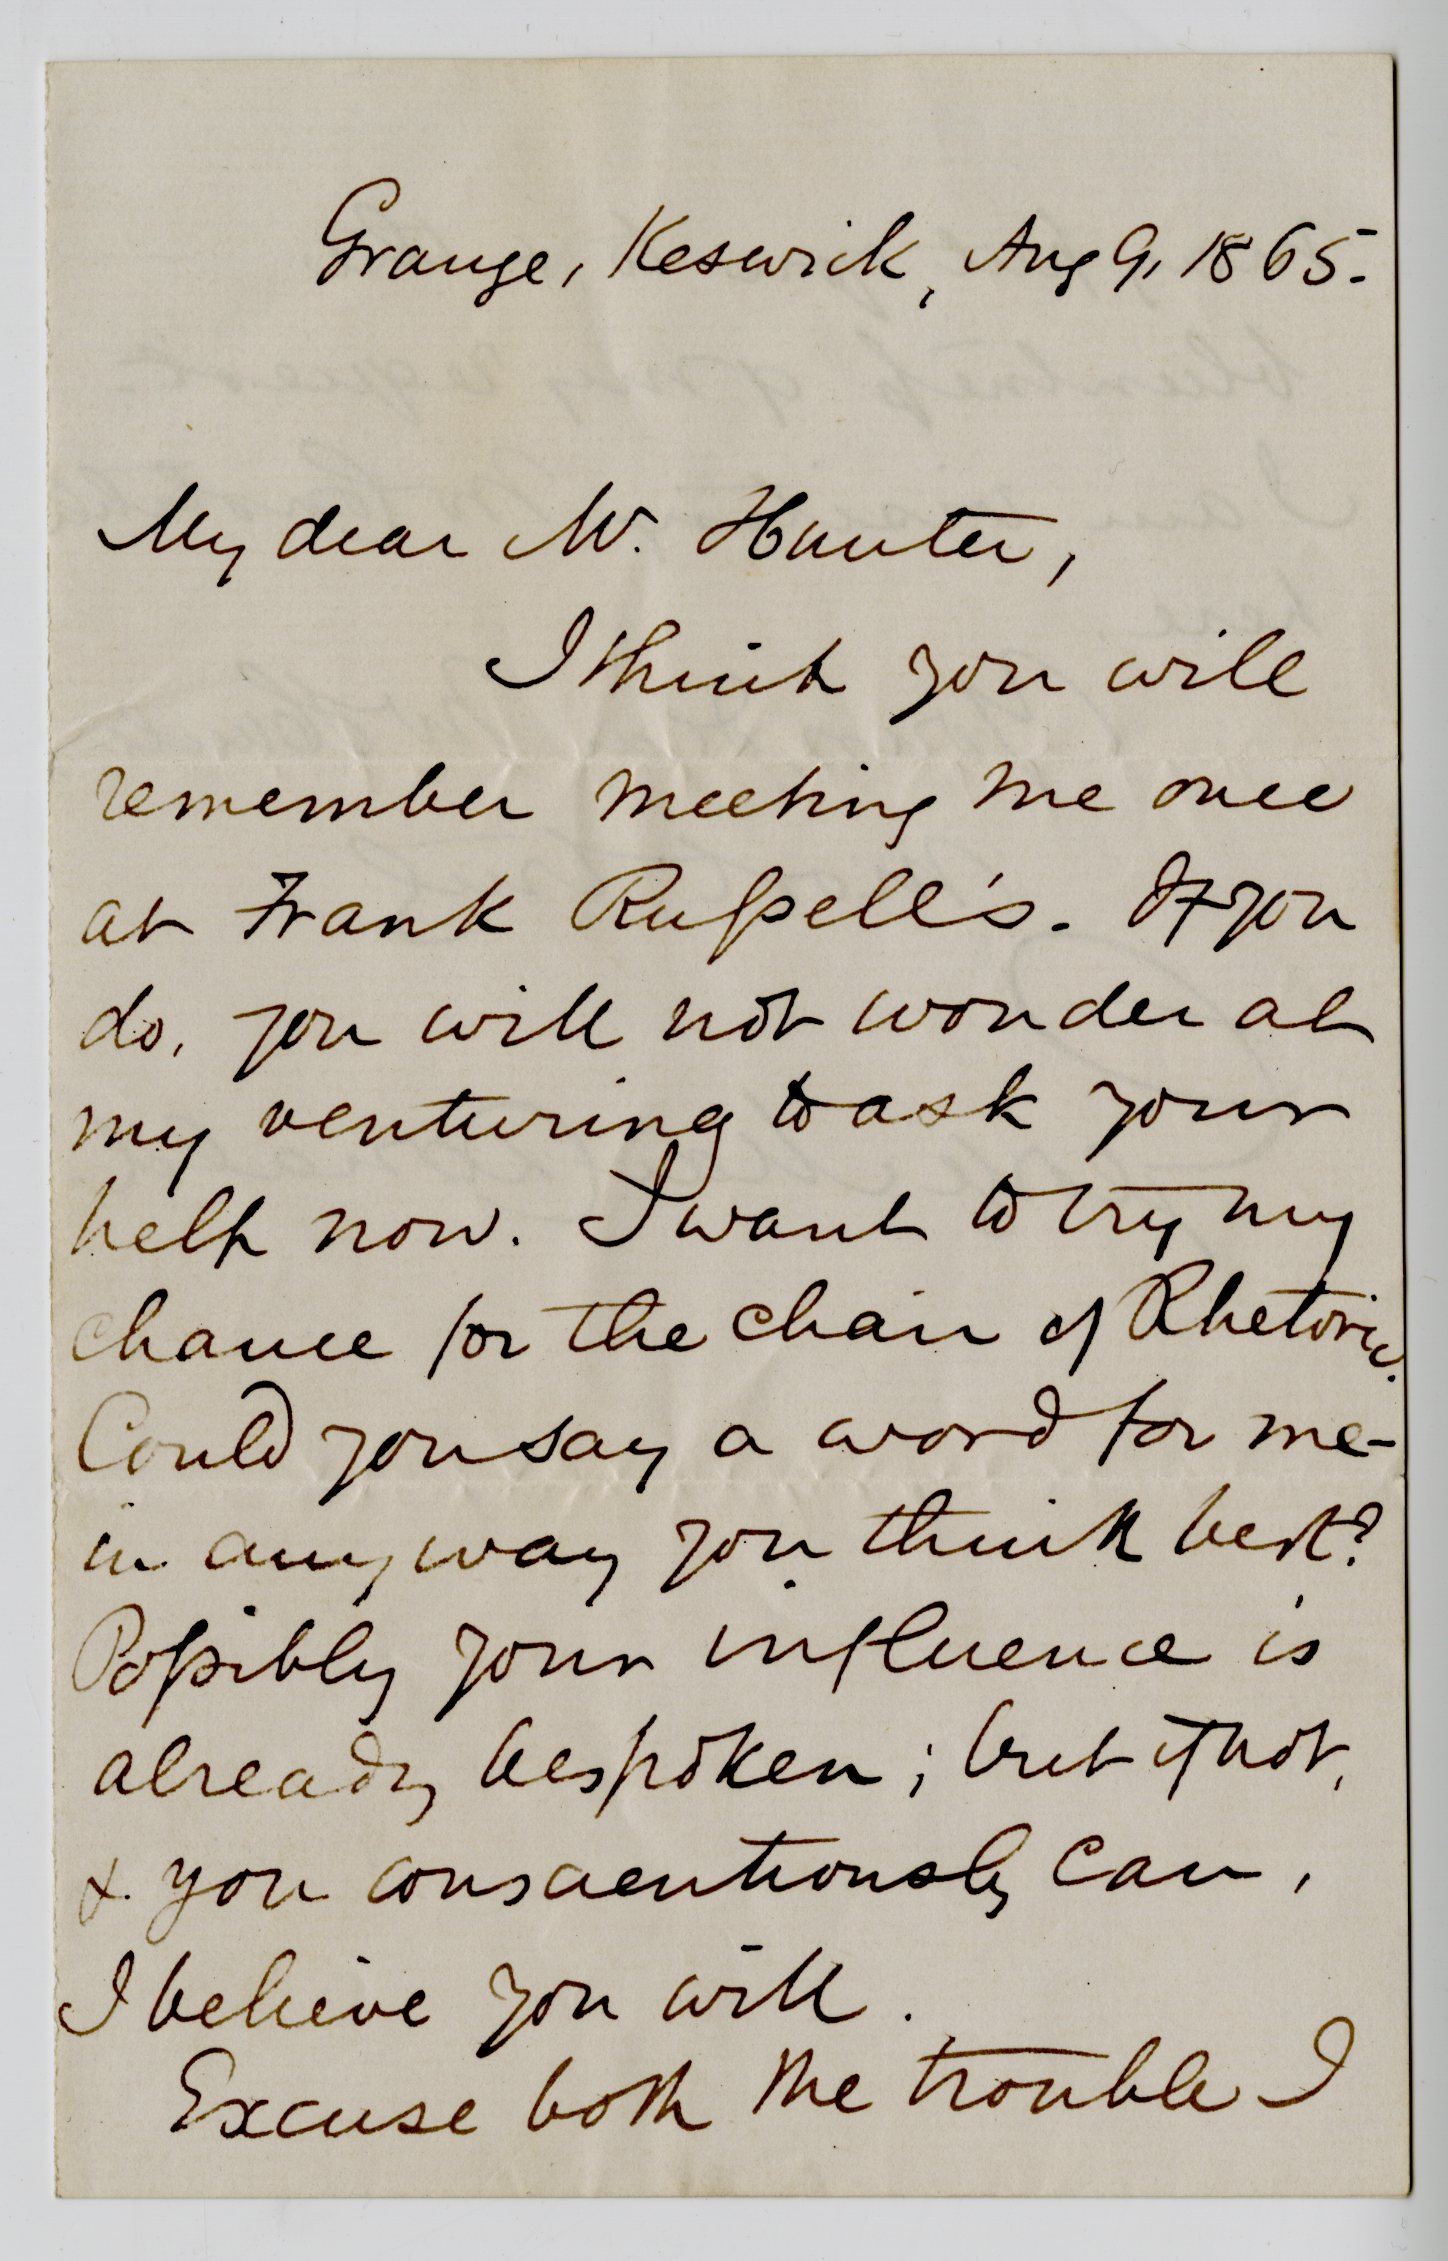 Grange, Keswick, Aug 9, 1865.
My dear Mr. Hunter,
I think you will
remember meeting me once
at Frank Ruſsell's. If you
do, you will not wonder at
my venturing to ask your
help now. I want to try my
chance for the chair of Rhetoric.
Could you say a word for me -
in any way you think best?
Poſsibly your influence is
already bespoken; but if not,
& you conscientiously can,
I believe you will.
Excuse both the trouble I